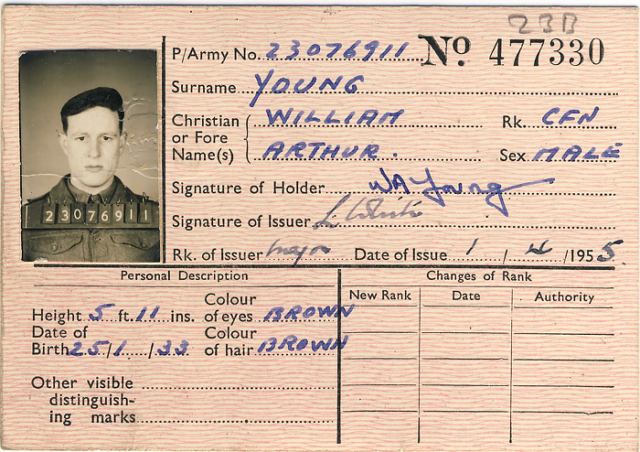 23B
P/Army No. 23076911 No 477330
Surname YOUNG
Christian or Fore Name(s) WILLIAM ARTHUR.
Rk. CFN
Sex MALE
23076911
Signature of Holder WA Young
Signature of Issuer
Rk. of Issuer Major Date of Issue 1/4/1955
Personal Description
Height 5 ft. 11 ins. Colour of eyes BROWN
Date of Birth 25/1/33 Colour of hair BROWN
Other visible distinguishing marks
Changes of Rank
New Rank Date Authority